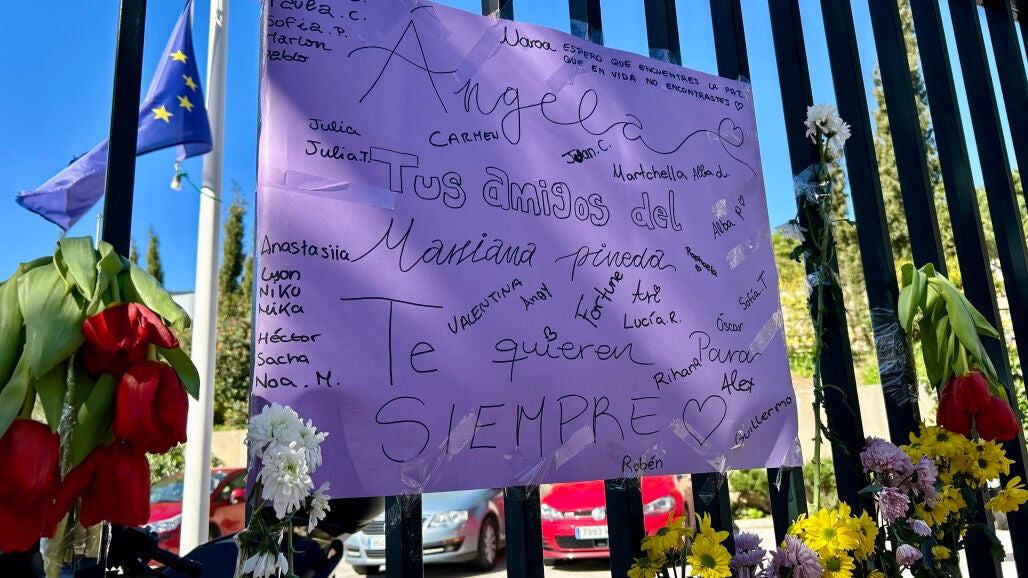 Paula.C.
Sofía.P.
Marlon
Pablo
Naroa
ESPERO QUE ENCUENTRES LA PAZ
QUE EN VIDA NO ENCONTRASTES
Ángela
Julia
Julia.T.
CARMEN
Juan.C.
Martchella
Alba.d.
Tus amigos del
Alba P.
Mariana pineda
Raphaela
Anastasiia
Lyon
NIKU
Nika
Héctor
Sacha
Noa.M.
VALENTINA
Andy
Fortune
Ari
Lucía.R.
Sofía.T
Óscar
Te quieren Para
Rihana
Alex
SIEMPRE
Guillermo
Robén